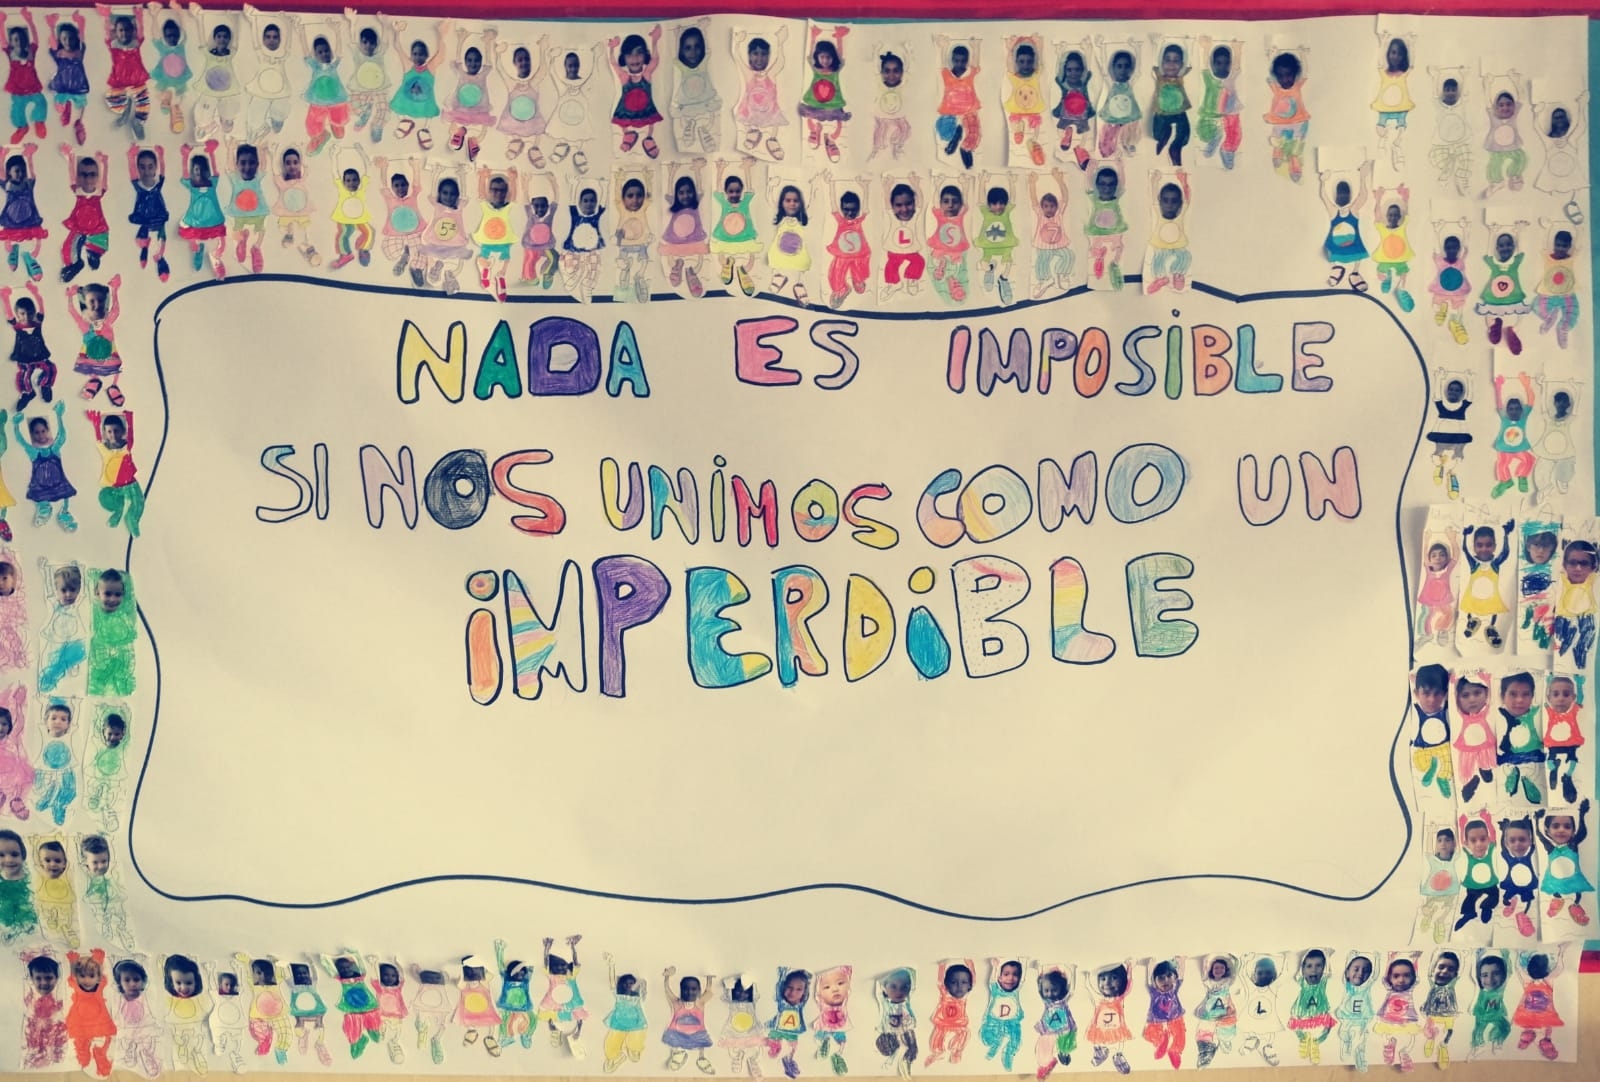 5º
S L S
7
NADA ES IMPOSIBLE
SI NOS UNIMOS COMO UN
IMPERDIBLE
A I J D D A J V A L A E S H M S